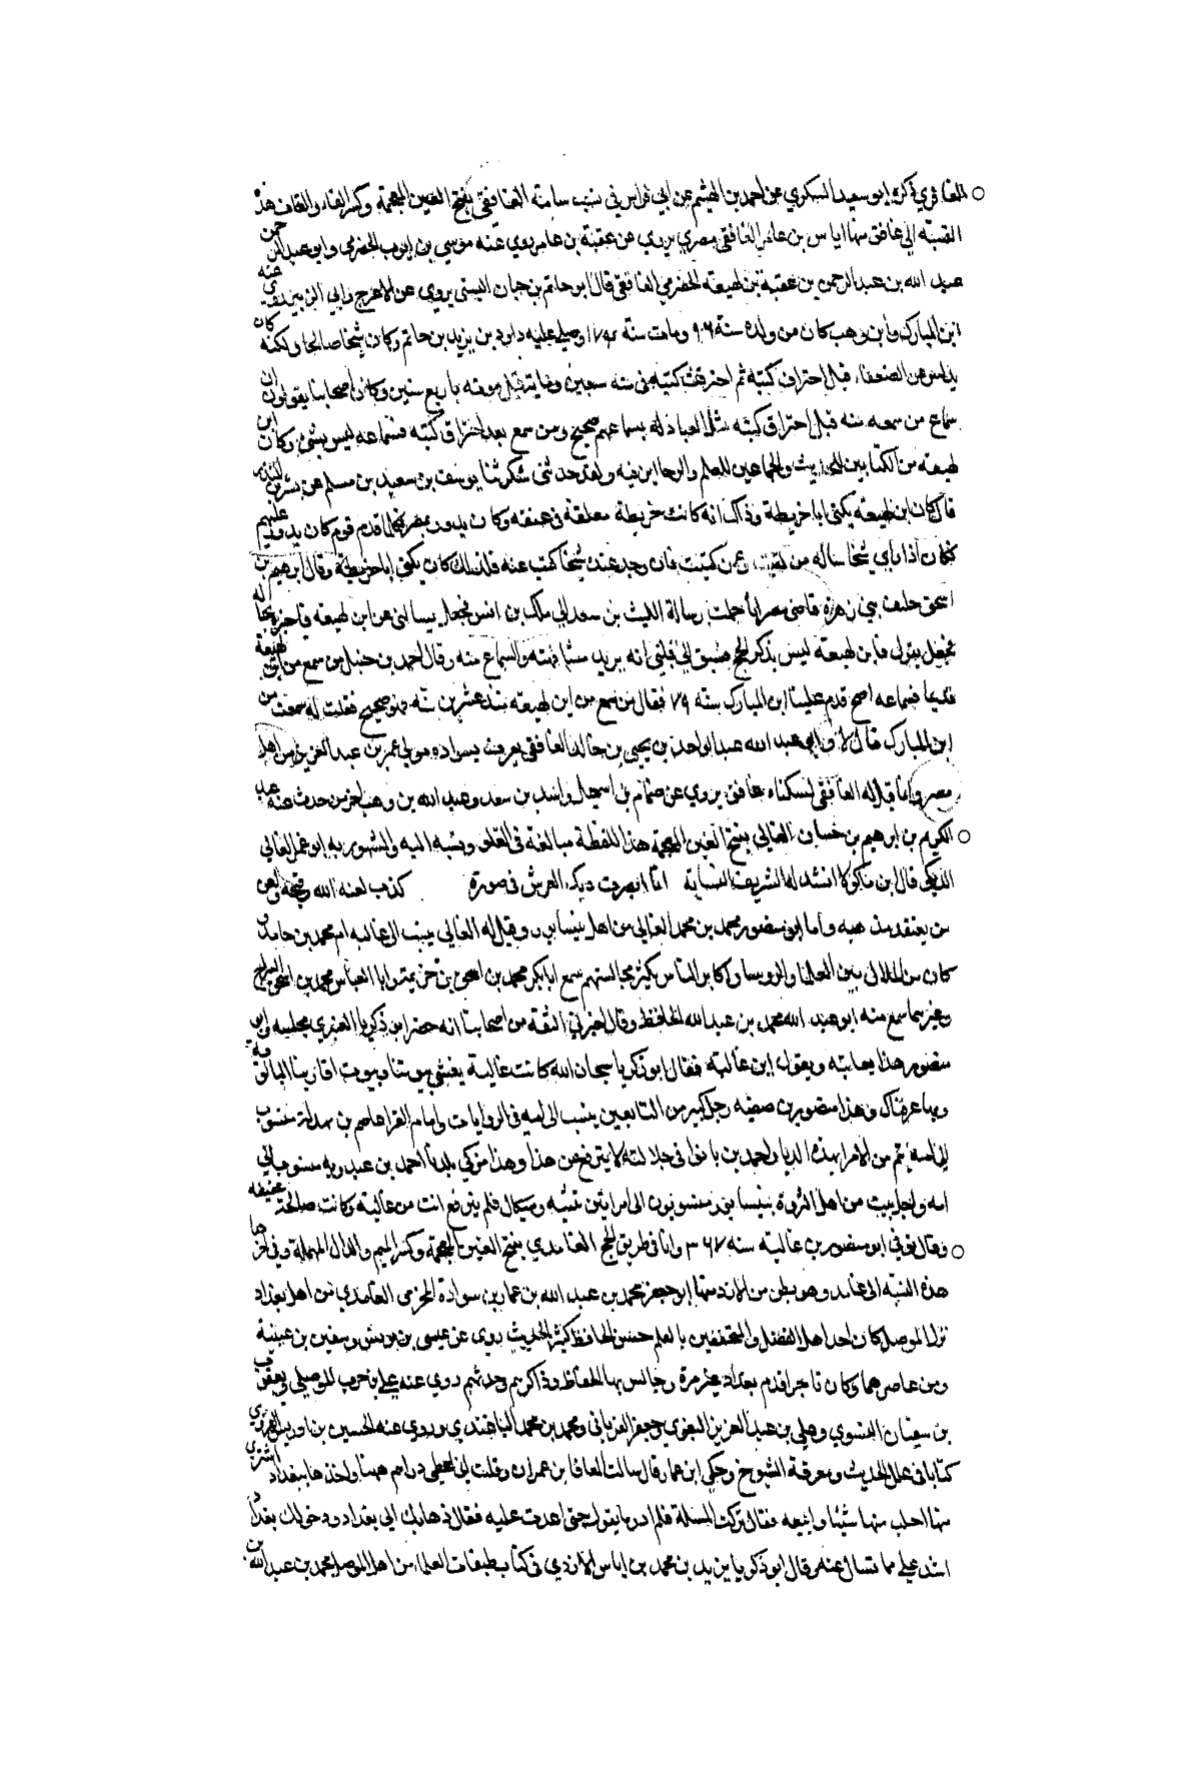 الغافري ذكره ابو سعيد السكري عن احمد بن الهيثم عن ابي فراس في نسب سامة الغافقي بفتح الغين المعجمة وكسر الفاء والقاف هذه
النسبة الى غافق منها اياس بن عامر الغافقي مصري يروي عن عقبة بن عامر روي عنه موسي بن ايوب الحضرمي وابو عبد الرحمن
عبد الله بن عبد الرحمن بن عقبة بن لهيعة الحضرمي الغافقي قال ابو حاتم بن حبان البستي يروي عن الاعرج وابي الزبير روي عنه
ابن المبارك وابن وهب كان من ولده سنة ٩٦ ومات سنة ١٧٤ وصلي عليه داود بن يزيد بن حاتم وكان شيخا صالحا ولكنه كان
يدلس عن الضعفاء قبل احتراق كتبه ثم احترقت كتبه في سنه سبعين ومايه قبل موته باربع سنين وكان اصحابنا يقولون ان
سماع من سمعه منه قبل احتراق كتبه مثل العبادله بسماعهم صحيح ومن سمع بعد احتراق كتبه فسماعه ليس بشي وكان ابن
لهيعة من الكتابين للحديث والجماعين للعلم والرحالين فيه ولقد حدثني شكر ثنا يوسف بن سعيد بن مسلم عن بشر بن المنذر
قال كان ابن لهيعه يكنى ابا خريطة وذاك انه كانت خريطة معلقة في عنقه وكان يدور بمصر فكلما قدم قوم كان يدور عليهم
فكان اذا راي شيخا ساله من لقيت وعن كتبت فان وجد عنده شيخا كتب عنه فلذلك كان يكنى ابا خريطة وقال ابرهيم بن
اسحق حليف بني زهرة قاضي مصر انا حملت رسالة الليث بن سعد الي ملك بن انس فجعل يسالني عن ابن لهيعه فاخبره بحاله
فجعل يقول لي فابن لهيعه ليس يذكر الحج فسبق الي قلبي انه يريد مشافهته والسماع منه وقال احمد بن حنبل من سمع من ابن لهيعة
قديما فسماعه اصح قدم علينا ابن المبارك سنه ٧٩ فقال من سمع من ابن لهيعه منذ عشرين سنه فهو صحيح فقلت له سمعت من
ابن المبارك قال لا وابو عبد الله عبد الواحد بن يحيى بن خالد الغافقي يعرف بسواده مولى عمر بن عبد العزيز من اهل
مصر وانما قيل له الغافقي لسكناه غافق يروي عن ضمام بن اسمعيل ورشدين بن سعد وعبد الله بن وهب اخر من حدث عنه عبد
الكريم بن ابرهيم بن حسان الغالي بفتح الغين المعجمة هذا اللفظة مبالغة في الغلو ونسبه اليه والمشهور به ابو الغمر الغالي
الديكي قال ابن ماكولا انشد له الشريف النسابة اما ابصرت ديك العرش في صورة كذب لعنه الله وقبحه ولعن
من يعتقد مذهبه واما ابو منصور محمد بن محمد الغالي من اهل نيسابور وقيل له الغالي ينسب الى غاليه ام محمد بن حامد و
كان من الدلالى بين العلما والروسا واكابر الناس يكثر مجالستهم سمع ابا بكر محمد بن اسحق بن خزيمة وابا العباس محمد بن اسحق السراج
وغيرهما سمع منه ابو عبد الله محمد بن عبد الله الحافظ وقال اخبرني الثقة من اصحابنا انه حضر ابن زكريا العنبري مجلسه وابو
منصور هذا يعاتبه ويقول ابن غاليه فقال ابو زكريا سبحان الله كانت غالية يغشى بيوتنا وبيوت اقاربنا
وبها عرفناك وهذا منصور بن صفيه رجل كبير من التابعين ينسب الى امه في الروايات وامام القرا عاصم بن بهدلة منسوب
الى امه ثم من الامراء بهذه الديار احمد بن بانوا في جلالته لا يترفع عن هذا وهذا مزكي بلدنا احمد بن عبدويه منسوب الي
امه واجل بيت من اهل الثروة بنيسابور منسوبون الى امراتين تنيّه وميكال فلم يترفع انت من غالية وكانت صالحة عفيفه
وقال توفي ابو منصور بن غاليه سنه ٣٦٧ وانا في طريق الحج الغامدي بفتح الغين المعجمة وكسر الميم والدال المهملة وفي اخرها
هذه النسبه الى غامد وهو بطن من الازد منها ابو جعفر محمد بن عبد الله بن عمار بن سوادة المخرمى الغامدي من اهل بغداد
نزل الموصل كان احد اهل الفضل والمحققين بالعلم حسن الحافظ كثير الحديث روي عن عيسى بن يونس وسفين بن عيينة
ومن عاصرهما وكان تاجرا قدم بغداد غير مرة وجالس بها الحفاظ وذاكرهم وحدثهم روي عنه علي بن حرب الموصلي ويعقوب
بن سفيان الفسوي وعلي بن عبد العزيز البغوي وجعفر الفريابي ومحمد بن محمد الباغندي وروي عنه الحسين بن ادريس الهروي
كتابا في علل الحديث ومعرفة الشيوخ وحكي ابن عمار قال سالت المعافا بن عمران وقلت اني اعطي دراهم ههنا واخذها ببغداد اشتري
منها احلب منها شيئا وابيعه فقال تركت المسئلة فلم ادر ما يقول حتى اعدت عليه فقال ذهابك الى بغداد ودخولك بغداد
اشد علي مما تسال عنه وقال ابو زكريا يزيد بن محمد بن اياس الازدي في كتاب طبقات العلماء من اهل الموصل محمد بن عبد الله بن